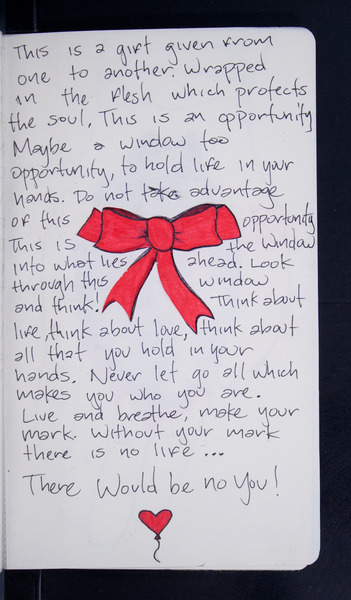 This is a gift given from
one to another. Wrapped
in the flesh which protects
the soul. This is an opportunity
Maybe a window too
opportunity, to hold life in your
hands. Do not take advantage
of this opportunity
This is the window
into what lies ahead. Look
through this window
and think! Think about
life, think about love, think about
all that you hold in your
hands. Never let go all which
makes you who you are.
Live and breathe, make your
mark. Without your mark
there is no life ...
There Would be no You!